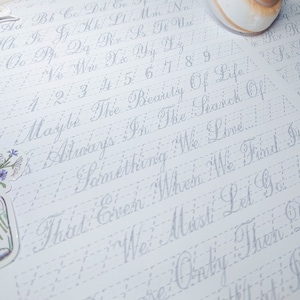 Aa Bb Cc Dd Ee Ff Gg
Hh Ii Jj Kk Ll Mm Nn
Oo Pp Qq Rr Ss Tt Uu
Vv Ww Xx Yy Zz
1 2 3 4 5 6 7 8 9
Maybe The Beauty Of Life
Always In The Search Of
Something We Love...
That Even When We Find I
We Must Let Go
Only Then